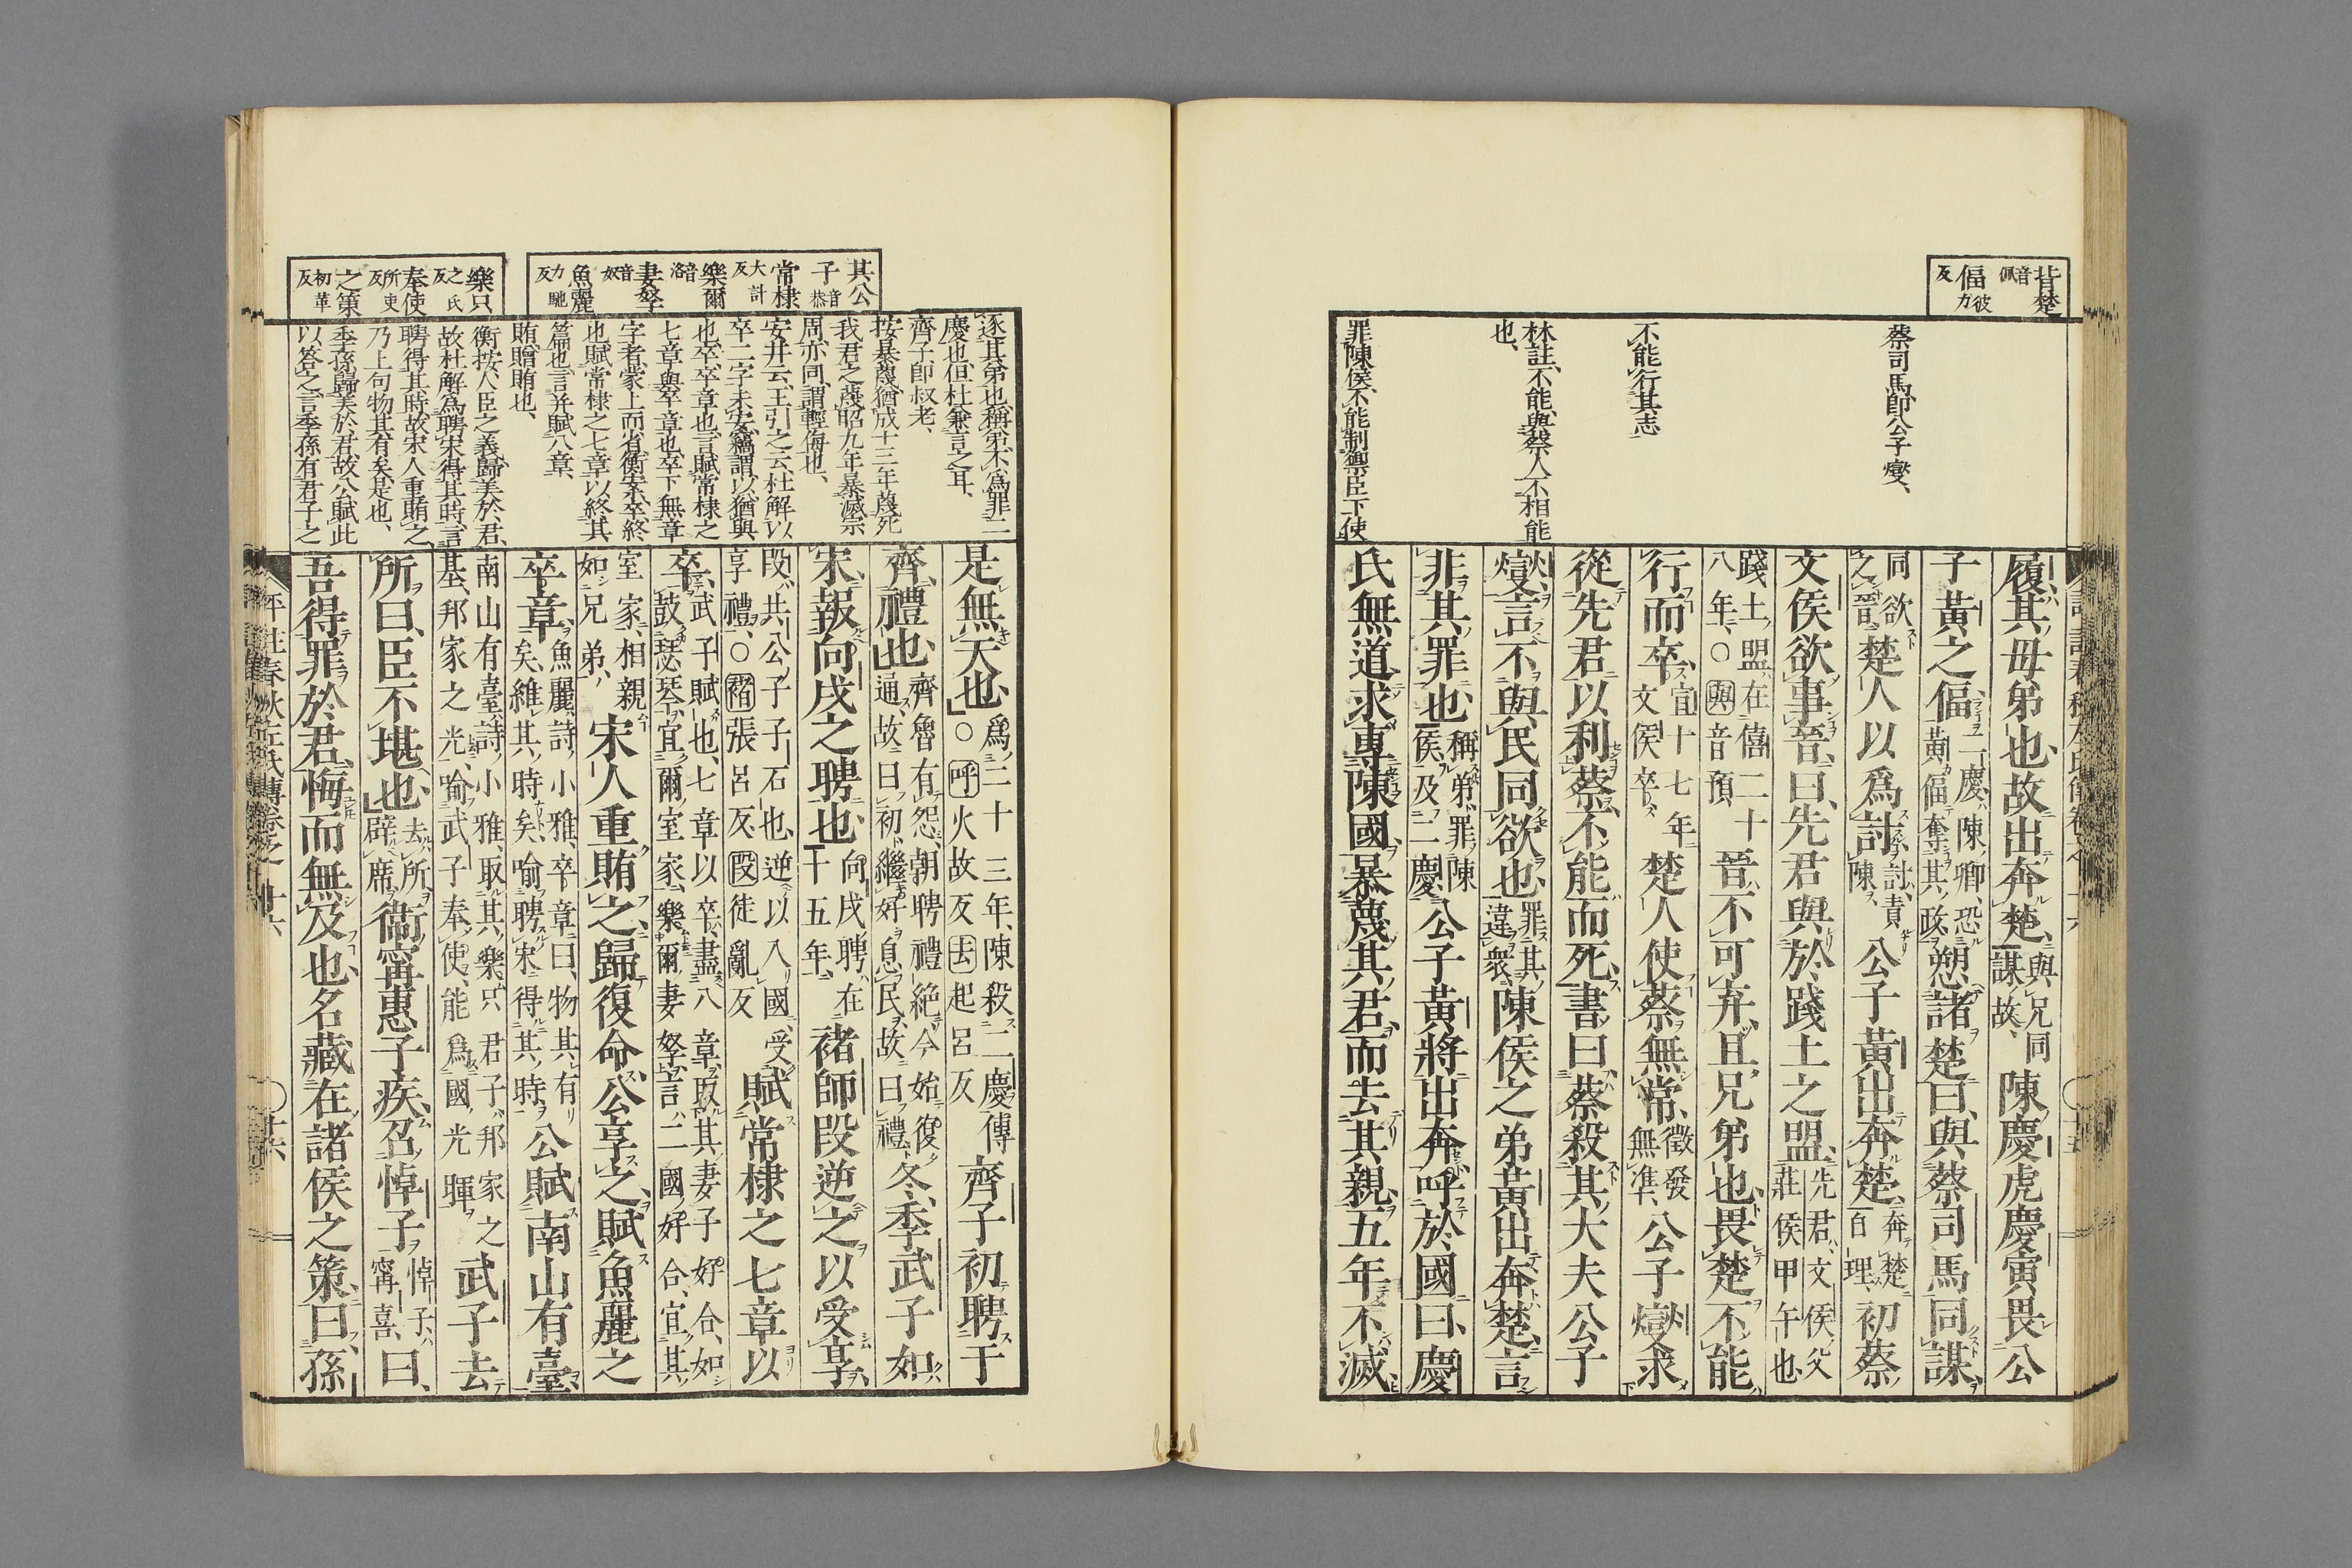 背楚
音佩
偪
彼力反
蔡司馬卽公子燮、
不能行其志
林註、不能與蔡人不相能
也、
罪陳侯、不能制禦臣下使
履、其母弟也、故出奔楚、與兄同謀、故、陳慶虎慶寅、畏公
子黃之偪、二慶、陳卿、恐黃偪奪其政、愬諸楚曰、與蔡司馬同謀、
同欲之晉、楚人以爲討、討、責陳、公子黃出奔楚、奔楚自理、初蔡
文侯欲事晉、曰、先君與於踐土之盟、先君、文侯父莊侯甲午也
踐土盟、在僖二十八年、○與音預 晉不可弃、且兄弟也、畏楚、不能
行而卒、宣十七年文侯卒、楚人使蔡無常、徵發無準、公子燮求
從先君以利蔡、不能而死、書曰、蔡殺其大夫公子
燮、言不與民同欲也、罪其違衆、陳侯之弟黃出奔楚、言
非其罪也、稱弟、罪陳侯及二慶、公子黃將出奔、呼於國曰、慶
氏無道、求專陳國、暴蔑其君、而去其親、五年不滅、
其公
子音恭
常棣
大計反
樂爾
音洛
妻孥
音奴
魚麗
力馳反
樂只
之氏反
奉使
所吏反
之策
初革反
逐其弟也、稱弟、不爲罪二
慶也、但杜兼言之耳、
齊子卽叔老、
按暴蔑猶成十三年蔑死
我君之蔑、昭九年暴滅宗
周、亦同、謂輕侮也、
安井云、王引之云、杜解以
卒二字未安、竊謂以、猶與
也、卒、卒章也、言賦常棣之
七章與卒章也、卒下無章
字者、蒙上而省、衡案、卒、終
也、賦常棣之七章以終其
篇也、言并賦八章、
賄、贈賄也、
衡按、人臣之義、歸美於君、
故杜解爲聘宋得其時、言
聘得其時、故宋人重賄之、
乃上句物其有矣是也、
季孫歸美於君、故公賦此
以答之、言季孫有君子之
是無天也、爲二十三年、陳殺二慶傳○呼火故反去起呂反 齊子初聘于
齊、禮也、齊魯有怨、朝聘禮絕、今始復通、故曰、初、繼好息民、故曰禮、冬、季武子如
宋、報向戌之聘也、向戌聘、在十五年、褚師段逆之以受享、
段、共公子子石也、逆以入國、受享禮、○褚張呂反、段徒亂反 賦常棣之七章以
卒、武子賦也、七章以卒、盡八章、取其妻子好合、如鼓瑟琴、宜爾室家、樂爾妻孥、言二國好合、宜其
室家、相親如兄弟、宋人重賄之、歸復命、公享之、賦魚麗之
卒章、魚麗、詩小雅、卒章曰、物其有矣、維其時矣、喻聘宋得其時、公賦南山有臺、
南山有臺、詩小雅、取其樂只君子、邦家之基、邦家之光、喻武子奉使、能爲國光暉、武子去
所曰、臣不堪也、去所、辟席、衞甯惠子疾、召悼子、悼子、甯喜、曰、
吾得罪於君、悔而無及也、名藏在諸侯之策、曰、孫